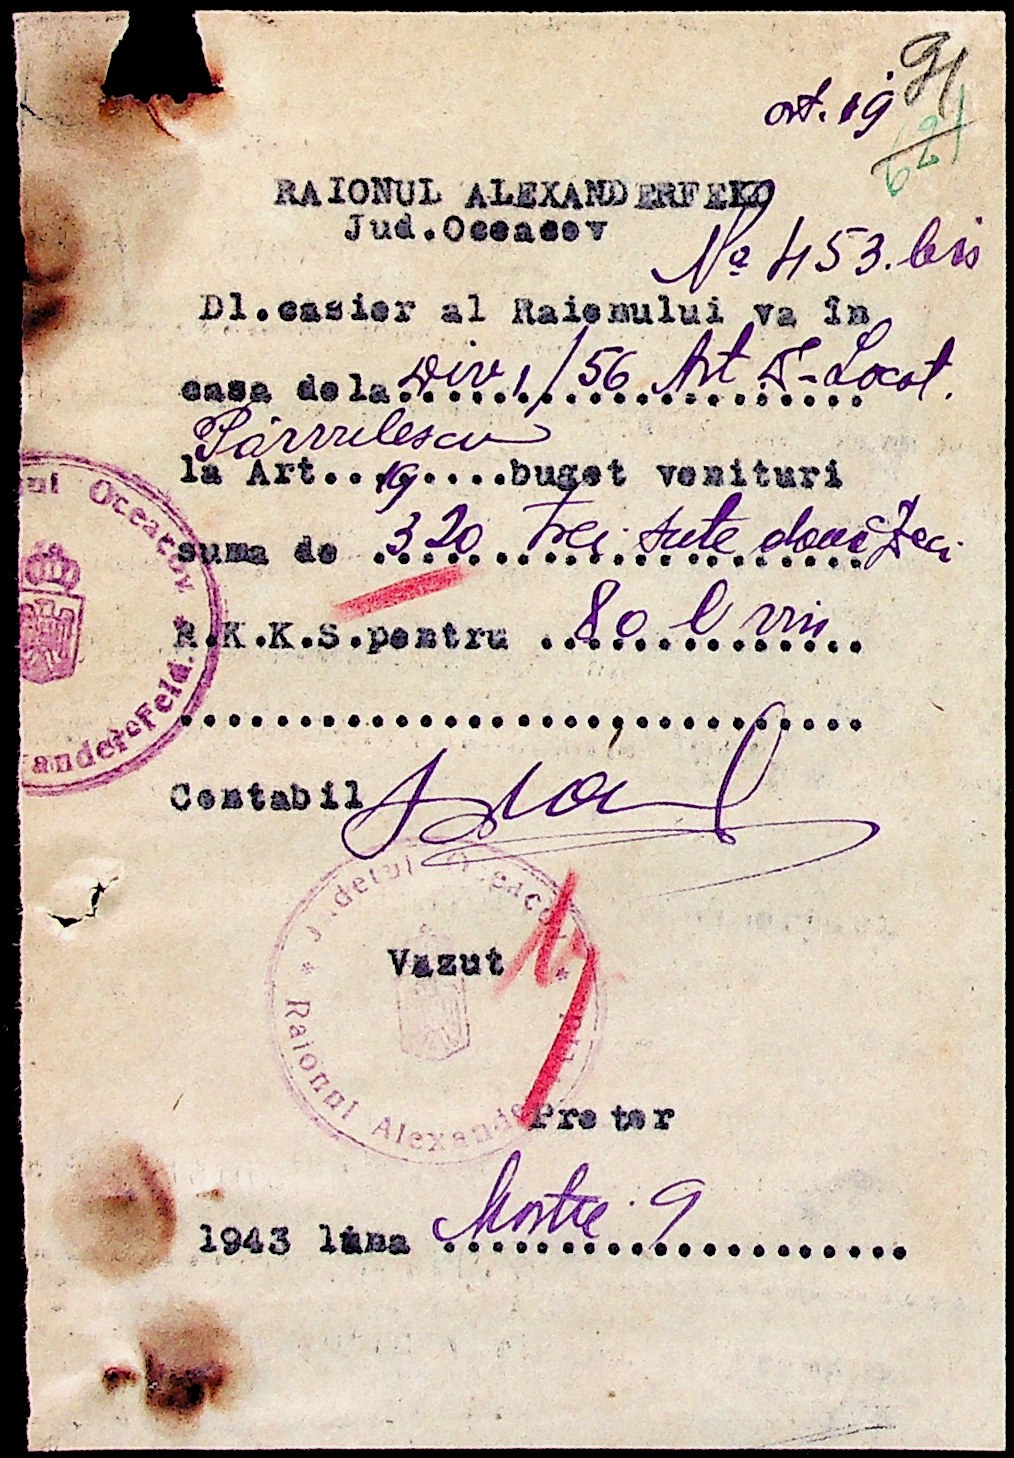 91
art. 19
621
RAIONUL ALEXANDERFELD
Jud.Oceacov
№ 453.bis
Dl.casier al Raionului va în
casa dela Div 1/56 Art S-Locot.
Pârvulescu
la Art....19....buget venituri
suma de 320 trei sute două zeci
R.K.K.S.pentru 80 l vin
..............................
Contabil
Vazut
Pretor
1943 luna Martie 9
ul Oceacov *
anderFeld.
* Judetul Oceacov *
Raionul Alexande